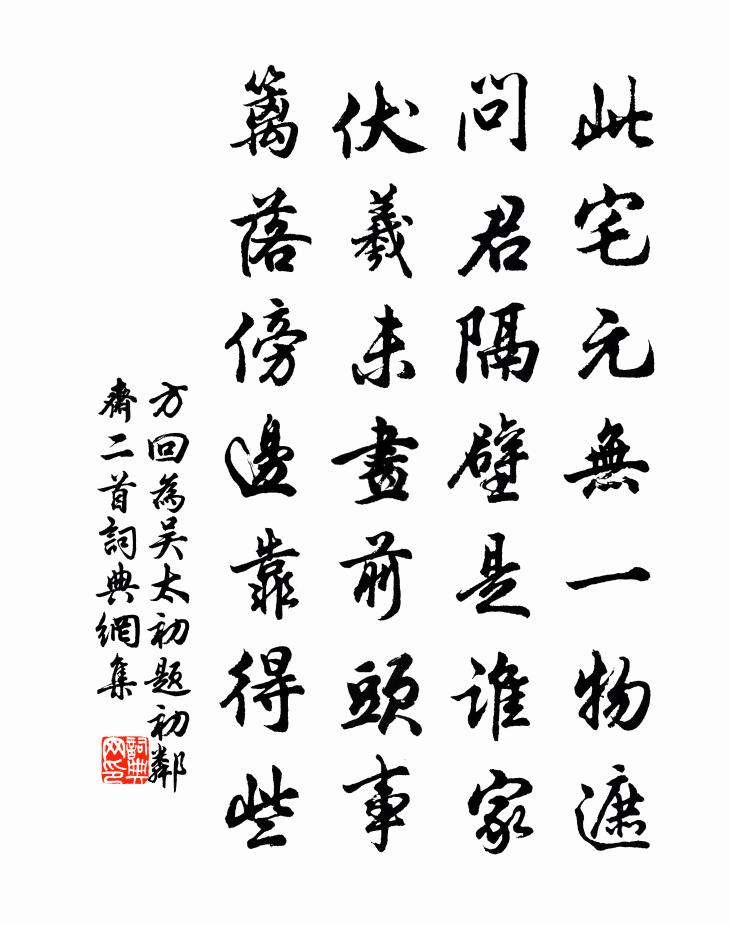 此宅元無一物遮
問君隔壁是誰家
伏羲未畫前頭事
籬落傍邊靠得些
方回為吳太初題初鄰
齋二首詞典網集
詞典網印